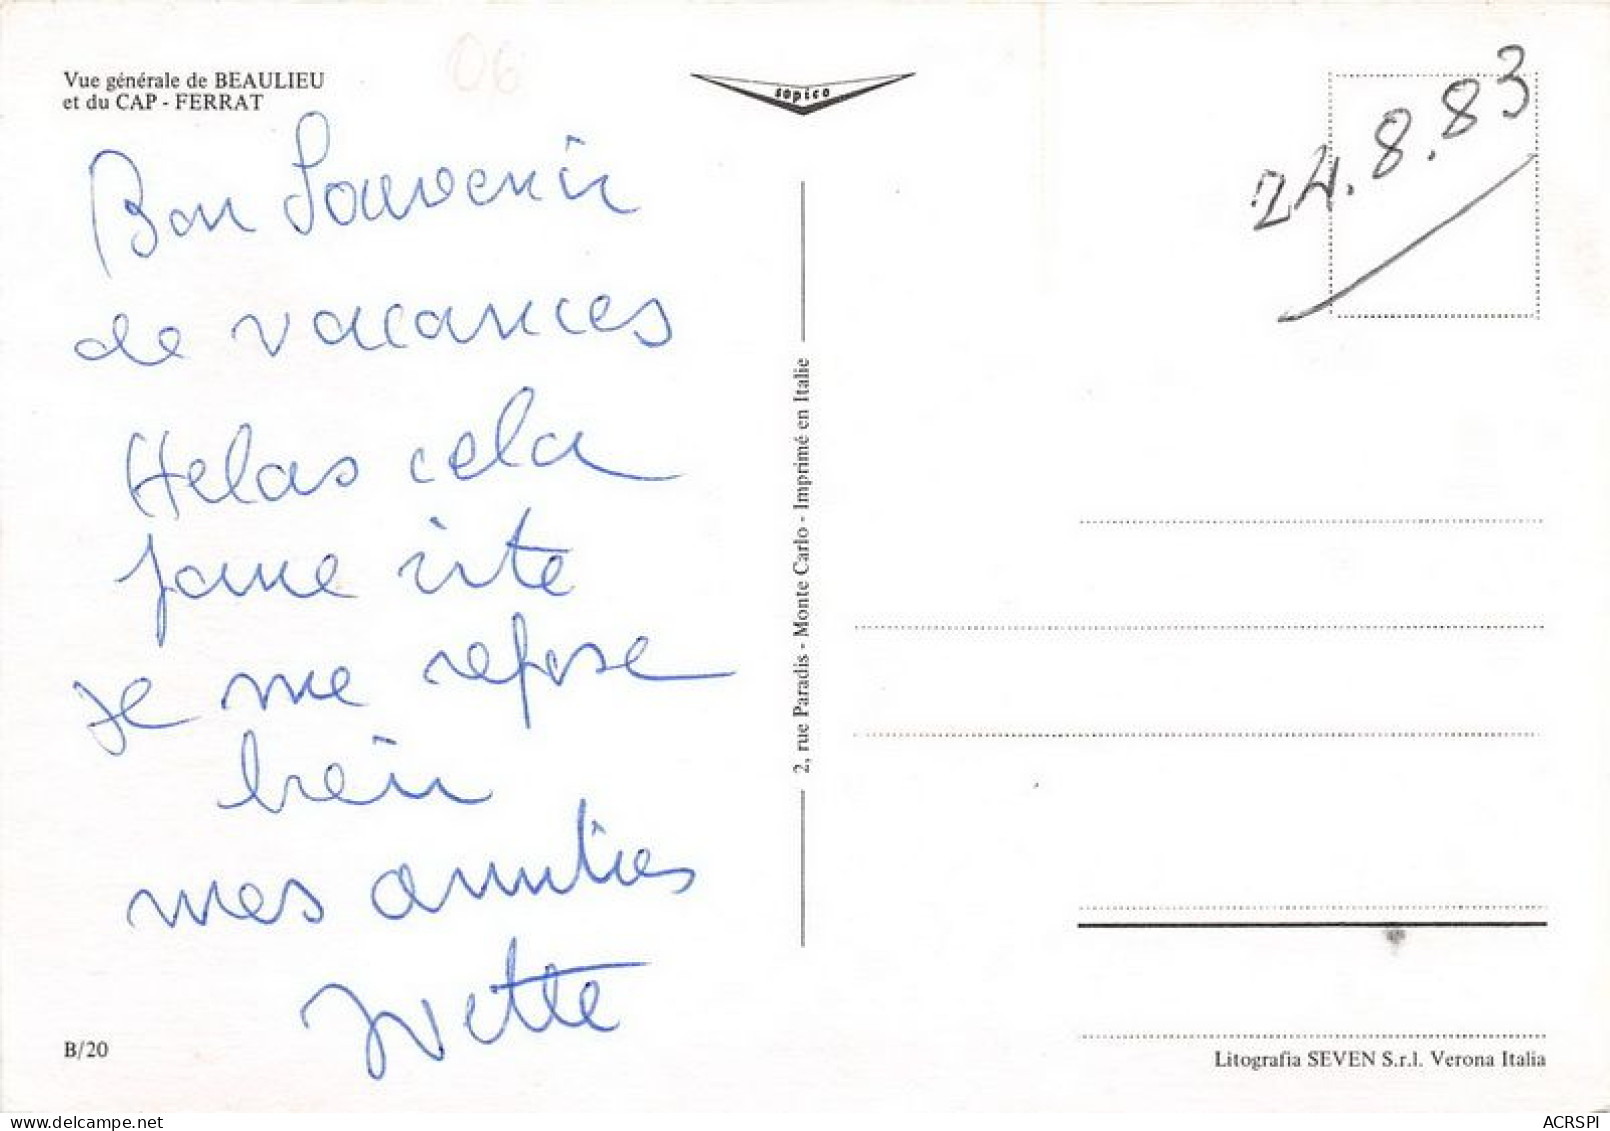 Vue générale de BEAULIEU
et du CAP - FERRAT
06
sopico
24.8.83
Bon Souvenir
de vacances
Helas cela
passe vite
je me repose
bien
mes amities
Yvette
2, rue Paradis - Monte Carlo - Imprimé en Italie
B/20
Litografia SEVEN S.r.l. Verona Italia
ACRSPI